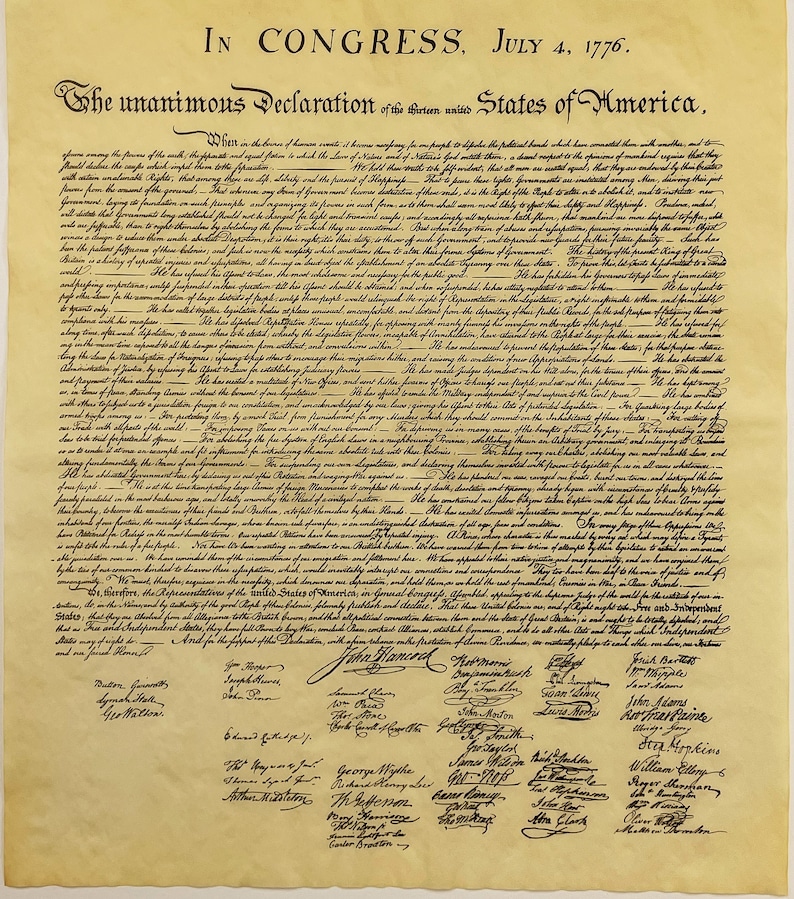 IN CONGRESS, JULY 4, 1776.
The unanimous Declaration of the thirteen united States of America,
When in the Course of human events, it becomes necessary for one people to dissolve the political bands which have connected them with another, and to
assume among the powers of the earth, the separate and equal station to which the Laws of Nature and of Nature's God entitle them, a decent respect to the opinions of mankind requires that they
should declare the causes which impel them to the separation. — We hold these truths to be self-evident, that all men are created equal, that they are endowed by their Creator
with certain unalienable Rights, that among these are Life, Liberty and the pursuit of Happiness. — That to secure these rights, Governments are instituted among Men, deriving their just
powers from the consent of the governed, — That whenever any Form of Government becomes destructive of these ends, it is the Right of the People to alter or to abolish it, and to institute new
Government, laying its foundation on such principles and organizing its powers in such form, as to them shall seem most likely to effect their Safety and Happiness. Prudence, indeed,
will dictate that Governments long established should not be changed for light and transient causes; and accordingly all experience hath shewn, that mankind are more disposed to suffer, while
evils are sufferable, than to right themselves by abolishing the forms to which they are accustomed. But when a long train of abuses and usurpations, pursuing invariably the same Object
evinces a design to reduce them under absolute Despotism, it is their right, it is their duty, to throw off such Government, and to provide new Guards for their future security. — Such has
been the patient sufferance of these Colonies; and such is now the necessity which constrains them to alter their former Systems of Government. The history of the present King of Great
Britain is a history of repeated injuries and usurpations, all having in direct object the establishment of an absolute Tyranny over these States. To prove this, let Facts be submitted to a candid
world. — He has refused his Assent to Laws, the most wholesome and necessary for the public good. — He has forbidden his Governors to pass Laws of immediate
and pressing importance, unless suspended in their operation till his Assent should be obtained; and when so suspended, he has utterly neglected to attend to them. — He has refused to
pass other Laws for the accommodation of large districts of people, unless those people would relinquish the right of Representation in the Legislature, a right inestimable to them and formidable
to tyrants only. — He has called together legislative bodies at places unusual, uncomfortable, and distant from the depository of their Public Records, for the sole purpose of fatiguing them into
compliance with his measures. — He has dissolved Representative Houses repeatedly, for opposing with manly firmness his invasions on the rights of the people. — He has refused for
a long time, after such dissolutions, to cause others to be elected; whereby the Legislative powers, incapable of Annihilation, have returned to the People at large for their exercise; the State remain-
ing in the mean time exposed to all the dangers of invasion from without, and convulsions within. — He has endeavoured to prevent the population of these States; for that purpose obstruc-
ting the Laws for Naturalization of Foreigners; refusing to pass others to encourage their migrations hither, and raising the conditions of new Appropriations of Lands. — He has obstructed the
Administration of Justice, by refusing his Assent to Laws for establishing Judiciary powers. — He has made Judges dependent on his Will alone, for the tenure of their offices, and the amount
and payment of their salaries. — He has erected a multitude of New Offices, and sent hither swarms of Officers to harrass our people, and eat out their substance. — He has kept among
us, in times of peace, Standing Armies without the Consent of our legislatures. — He has affected to render the Military independent of and superior to the Civil power. — He has combined
with others to subject us to a jurisdiction foreign to our constitution, and unacknowledged by our laws; giving his Assent to their Acts of pretended Legislation: — For Quartering large bodies of
armed troops among us: — For protecting them, by a mock Trial, from punishment for any Murders which they should commit on the Inhabitants of these States: — For cutting off
our Trade with all parts of the world: — For imposing Taxes on us without our Consent: — For depriving us in many cases, of the benefits of Trial by Jury: — For transporting us beyond
Seas to be tried for pretended offences — For abolishing the free System of English Laws in a neighbouring Province, establishing therein an Arbitrary government, and enlarging its Boundaries
so as to render it at once an example and fit instrument for introducing the same absolute rule into these Colonies: — For taking away our Charters, abolishing our most valuable Laws, and
altering fundamentally the Forms of our Governments: — For suspending our own Legislatures, and declaring themselves invested with power to legislate for us in all cases whatsoever. —
He has abdicated Government here, by declaring us out of his Protection and waging War against us. — He has plundered our seas, ravaged our Coasts, burnt our towns, and destroyed the lives
of our people. — He is at this time transporting large Armies of foreign Mercenaries to compleat the works of death, desolation and tyranny, already begun with circumstances of Cruelty & perfidy
scarcely paralleled in the most barbarous ages, and totally unworthy the Head of a civilized nation. — He has constrained our fellow Citizens taken Captive on the high Seas to bear Arms against
their Country, to become the executioners of their friends and Brethren, or to fall themselves by their Hands. — He has excited domestic insurrections amongst us, and has endeavoured to bring on the
inhabitants of our frontiers, the merciless Indian Savages, whose known rule of warfare, is an undistinguished destruction of all ages, sexes and conditions. In every stage of these Oppressions We
have Petitioned for Redress in the most humble terms: Our repeated Petitions have been answered only by repeated injury. A Prince, whose character is thus marked by every act which may define a Tyrant,
is unfit to be the ruler of a free people. Nor have We been wanting in attentions to our Brittish brethren. We have warned them from time to time of attempts by their legislature to extend an unwarrant-
able jurisdiction over us. We have reminded them of the circumstances of our emigration and settlement here. We have appealed to their native justice and magnanimity, and we have conjured them
by the ties of our common kindred to disavow these usurpations, which, would inevitably interrupt our connections and correspondence. They too have been deaf to the voice of justice and of
consanguinity. We must, therefore, acquiesce in the necessity, which denounces our Separation, and hold them, as we hold the rest of mankind, Enemies in War, in Peace Friends. —
We, therefore, the Representatives of the united States of America, in General Congress, Assembled, appealing to the Supreme Judge of the world for the rectitude of our in-
tentions, do, in the Name, and by Authority of the good People of these Colonies, solemnly publish and declare, That these United Colonies are, and of Right ought to be Free and Independent
States; that they are Absolved from all Allegiance to the British Crown, and that all political connection between them and the State of Great Britain, is and ought to be totally dissolved; and
that as Free and Independent States, they have full Power to levy War, conclude Peace, contract Alliances, establish Commerce, and to do all other Acts and Things which Independent
States may of right do. — And for the support of this Declaration, with a firm reliance on the protection of divine Providence, we mutually pledge to each other our Lives, our Fortunes
and our sacred Honor.
Button Gwinnett
Lyman Hall
Geo Walton.
Wm Hooper
Joseph Hewes,
John Penn
Edward Rutledge /.
Thos Heyward Junr.
Thomas Lynch Junr.
Arthur Middleton
John Hancock
Samuel Chase
Wm Paca
Thos Stone
Charles Carroll of Carrollton
George Wythe
Richard Henry Lee
Th Jefferson
Benj Harrison
Thos Nelson jr.
Francis Lightfoot Lee
Carter Braxton
Robt Morris
Benjamin Rush
Benj. Franklin
John Morton
Geo Clymer
Jas. Smith
Geo. Taylor
James Wilson
Geo. Ross
Caesar Rodney
Geo Read
Tho M:Kean
Phil. Livingston
Frans. Lewis
Lewis Morris
Richd. Stockton
Jno Witherspoon
Fras. Hopkinson
John Hart
Abra Clark
Josiah Bartlett
Wm. Whipple
Saml Adams
John Adams
Robt Treat Paine
Elbridge Gerry
Step. Hopkins
William Ellery
Roger Sherman
Saml Huntington
Wm Williams
Oliver Wolcott
Matthew Thornton